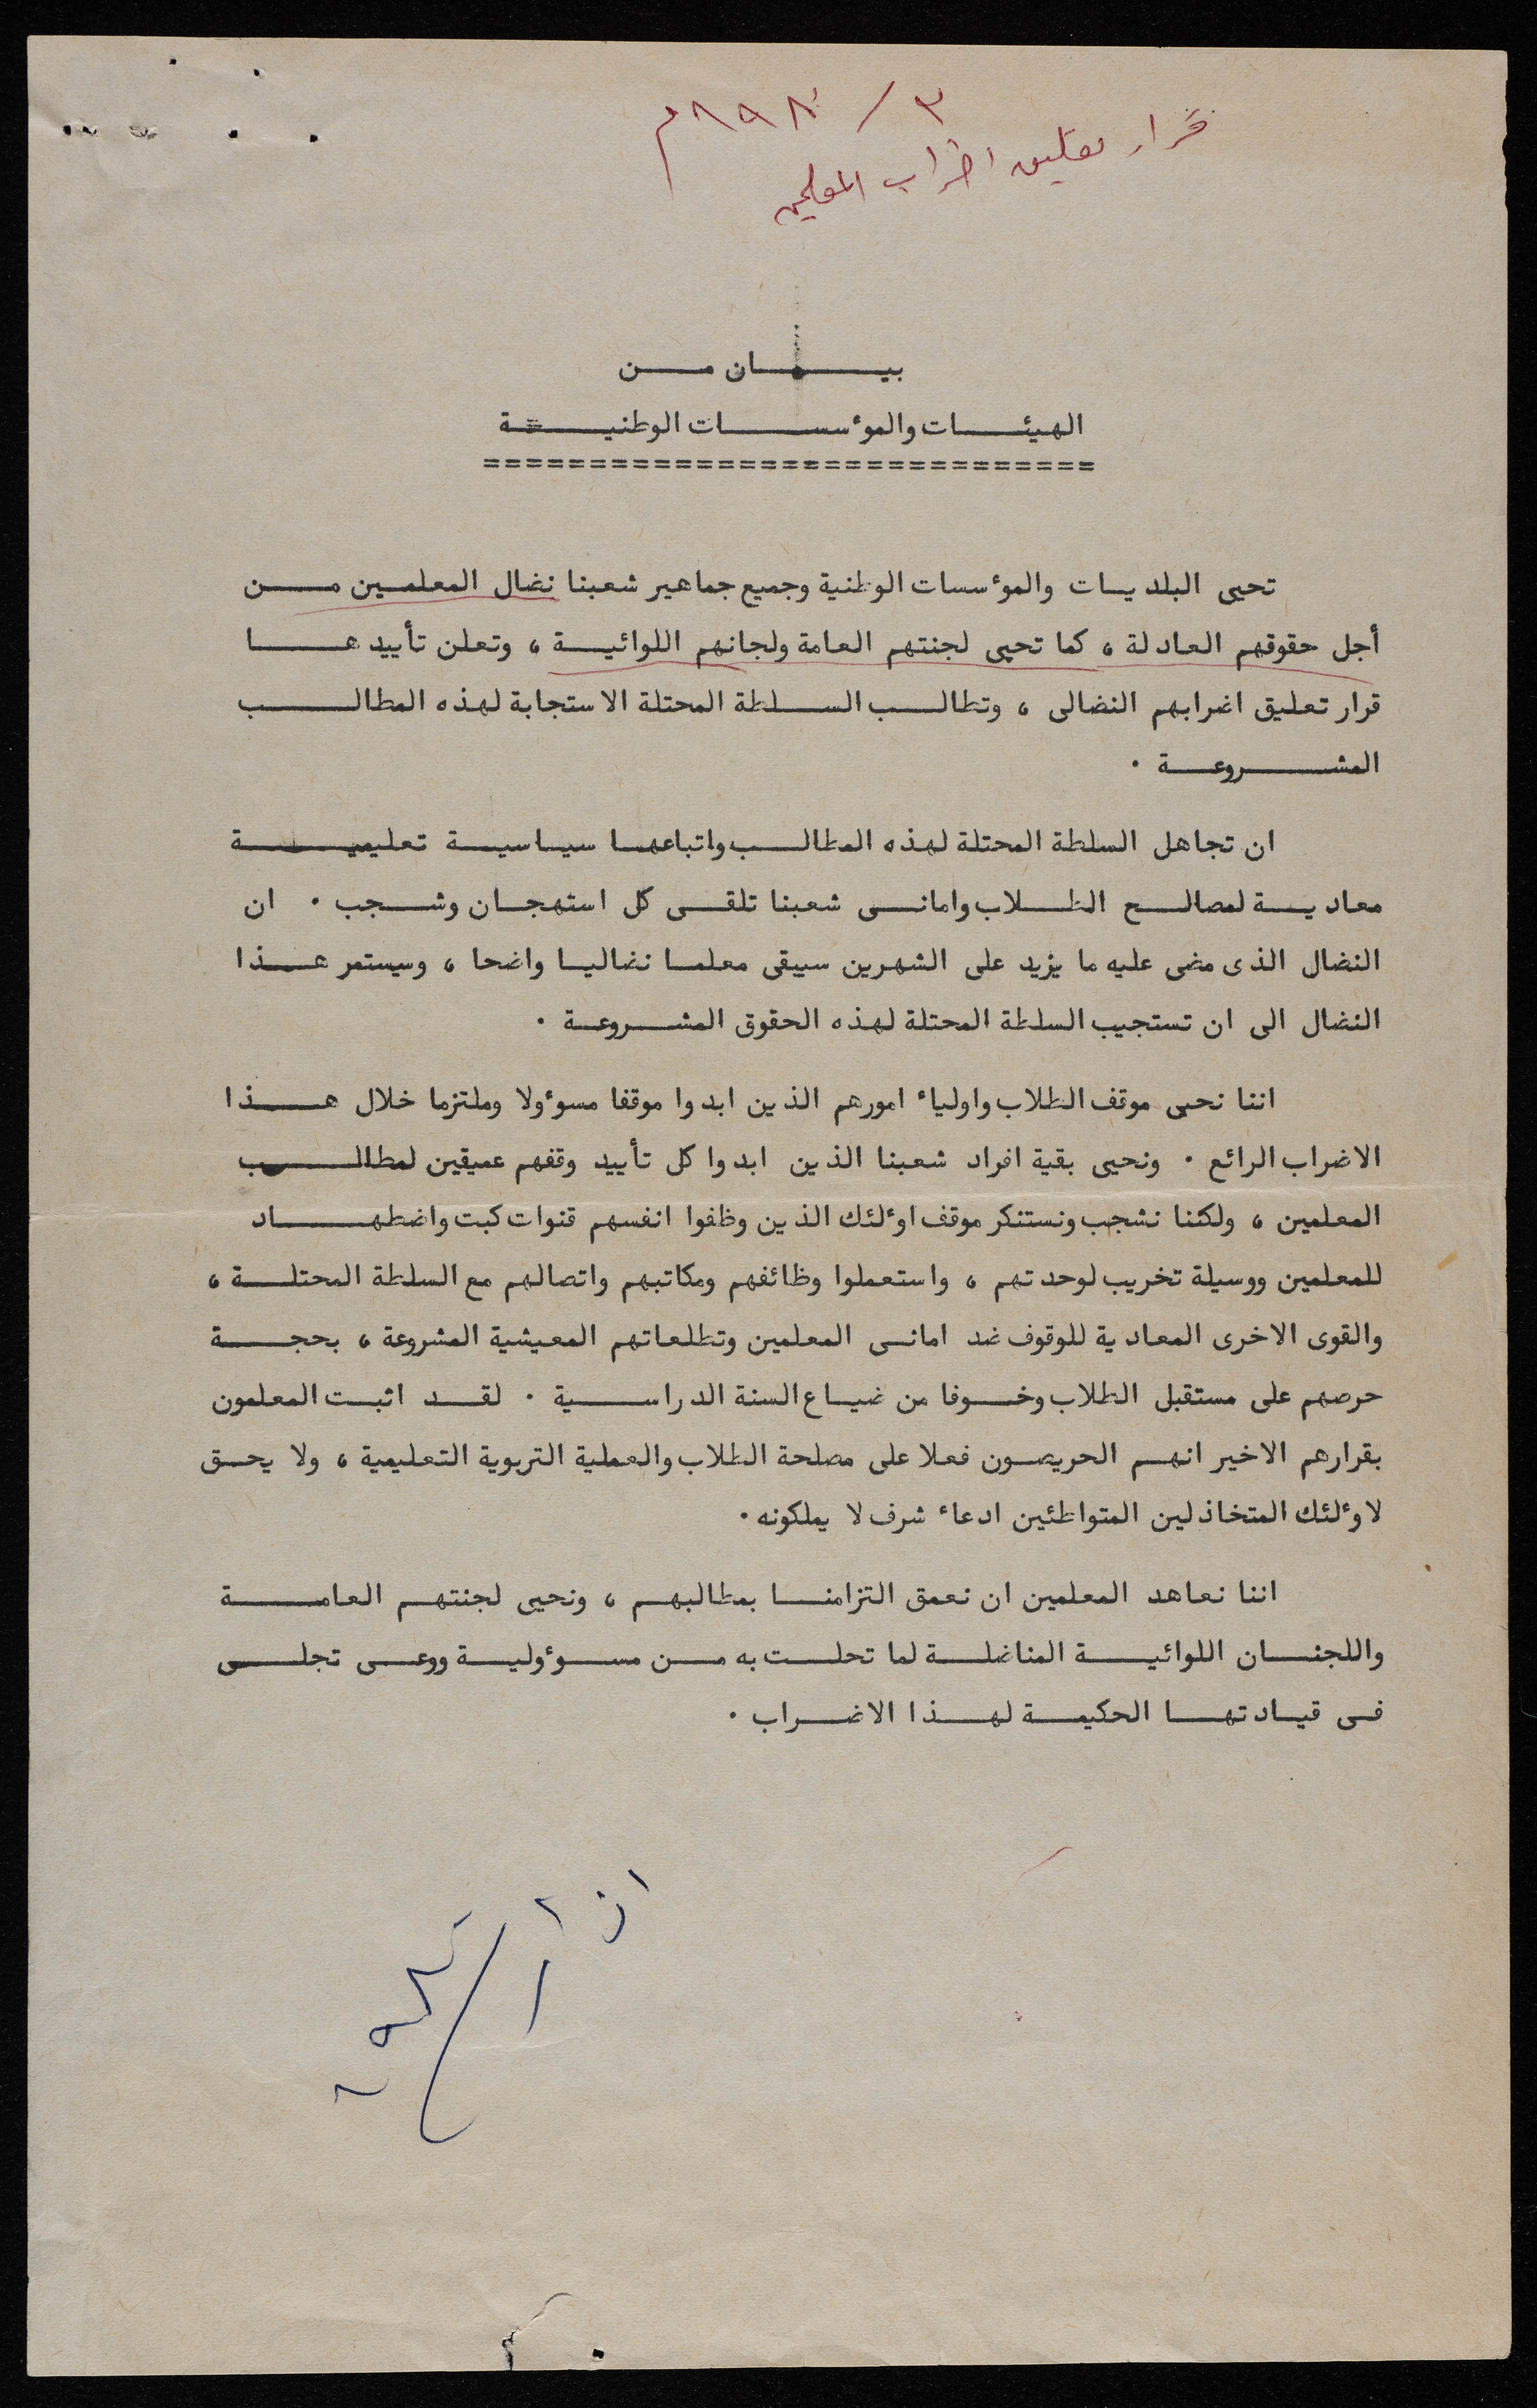 قرار تعليق اضراب المعلمين
بيـــــان مـــن
الهيئــــات والموٴسســــات الوطنيــــة
=============================
تحيى البلديـات والموٴسسات الوطنية وجميع جماهير شعبنا نضال المعلمـين مــــن
أجل حقوقهم العادلة ، كما تحيى لجنتهم العامة ولجانهم اللوائيـــة ، وتعلن تأييدهــــا
قرار تعليق اضرابهم النضالى ، وتطالـــب الســـلطة المحتلة الاستجابة لهذه المطالــــب
المشــــروعــة .
ان تجاهل السلطة المحتلة لهذه المطالـــب واتباعهــا سيـاسيــة تعليميـــــة
معاديـــة لمصالـــح الطـــلاب وامانــى شعبنا تلقــى كل استهجــان وشــجب . ان
النضال الذى مضى عليه ما يزيد على الشهرين سيبقى معلمـا نضاليـا واضحا ، وسيستمر هـــذا
النضال الى ان تستجيب السلطة المحتلة لهذه الحقوق المشـــروعــة .
اننا نحيى موقف الطلاب واولياء امورهم الذين ابدوا موقفا مسوٴولا وملتزما خلال هـــذا
الاضراب الرائع . ونحيى بقية افراد شعبنا الذين ابدوا كل تأييد وقفهم عميقين لمطالـــــب
المعلمين ، ولكننا نشجب ونستنكر موقف اوٴلئك الذين وظفوا انفسهم قنوات كبت واضطهـــــاد
للمعلمين ووسيلة تخريب لوحدتهم ، واستعملوا وظائفهم ومكاتبهم واتصالهم مع السلطة المحتلـــة ،
والقوى الاخرى المعادية للوقوف ضد امانـى المعلمين وتطلعاتهم المعيشية المشروعة ، بحجـــة
حرصهم على مستقبل الطلاب وخـــوفا من ضيـاع السنة الدراســـية . لقــد اثبـت المعلمون
بقرارهم الاخير انهــم الحريصـون فعلا على مصلحة الطلاب والعملية التربوية التعليمية ، ولا يحــق
لاوٴلئك المتخاذلين المتواطئين ادعاء شرف لا يملكونه .
اننا نعاهد المعلمين ان نعمق التزامنــا بمطالبهــم ، ونحيى لجنتهــم العامـــــة
واللجنـــان اللوائيـــة المناضلــة لما تحلـــت به مــن مســوٴوليــة ووعــى تجلـــى
فـى قيـادتهــا الحكيمــة لهــذا الاضـــراب .